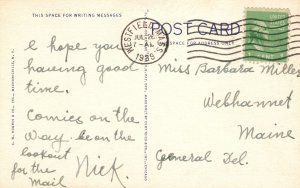 THIS SPACE FOR WRITING MESSAGES
POST CARD
THIS SPACE FOR ADDRESS ONLY
WESTFIELD, MASS.
JUL 26
1939
I hope you
having good
time.
Comics on the
way. be on the
lookout
for the
Mail
Nick.
Miss Barbara Miller
Webhannet
Maine
General Del.